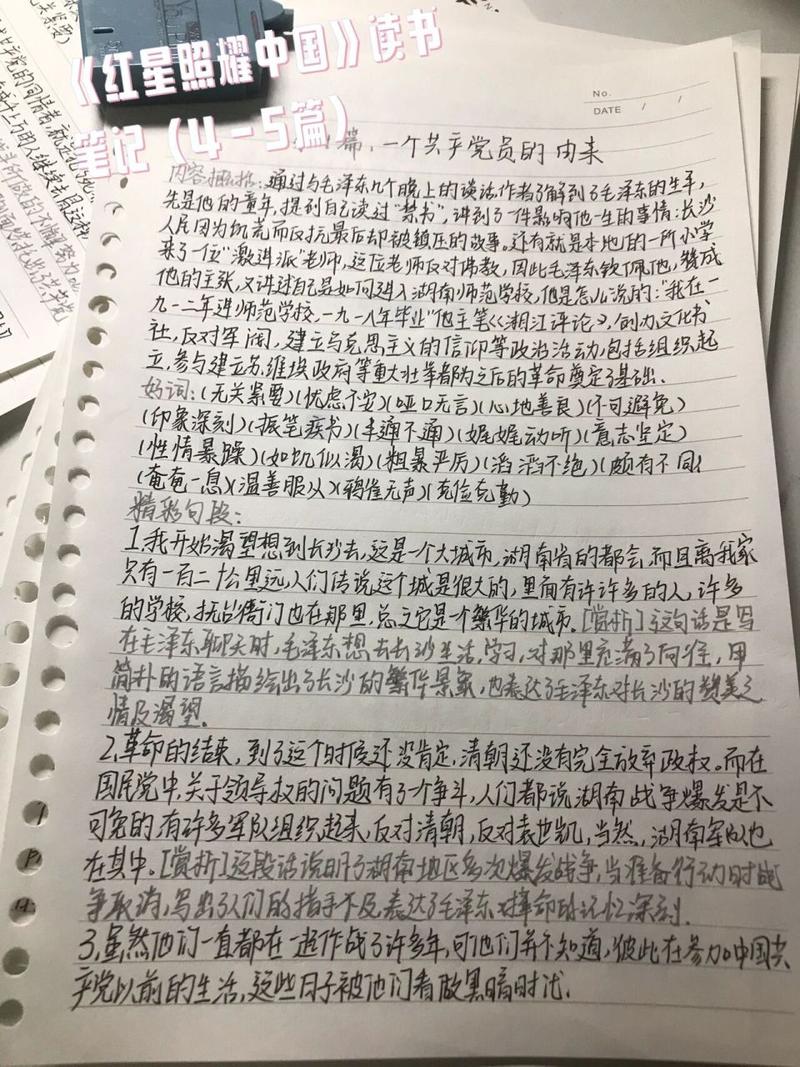 《红星照耀中国》读书
笔记（4-5篇）
No.
DATE / /
篇，一个共产党员的由来
内容概括：通过与毛泽东几个晚上的谈话，作者了解到了毛泽东的生平，
先是他的童年，提到自己读过“禁书”，讲到了一件影响他一生的事情：长沙
人民因为饥荒而反抗最后却被镇压的故事。还有就是本地的一所小学
来了一位“激进派”老师，这位老师反对佛教，因此毛泽东钦佩他，赞成
他的主张，又讲过自己是如何进入湖南师范学校，他是怎么说的：“我在一
九一二年进师范学校，一九一八年毕业”他主笔《湘江评论》，创办文化书
社，反对军阀，建立马克思主义的信仰等政治活动，包括组织起
立，参与建立苏维埃政府等重大壮举都为之后的革命奠定了基础。
好词：（无关紧要）（忧虑不安）（哑口无言）（心地善良）（不可避免）
（印象深刻）（振笔疾书）（半通不通）（娓娓动听）（意志坚定）
（性情暴躁）（如饥似渴）（粗暴严厉）（滔滔不绝）（颇有不同）
（奄奄一息）（温善服从）（鸦雀无声）（克俭克勤）
精彩句段：
1.我开始渴望想到长沙去，这是一个大城市，湖南省的都会，而且离我家
只有一百二十公里远，人们传说这个城是很大的，里面有许许多多的人，许多
的学校，抚台衙门也在那里，总之它是个繁华的城市。[赏析]这句话是写
在毛泽东聊天时，毛泽东想去长沙生活，学习，对那里充满了向往，用
简朴的语言描绘出了长沙的繁华景象，也表达了毛泽东对长沙的赞美之
情及渴望。
2.革命的结束，到了这个时候还没肯定，清朝还没有完全放弃政权。而在
国民党中，关于领导权的问题有了个争斗，人们都说湖南战争爆发是不
可免的，有许多军队组织起来，反对清朝，反对袁世凯，当然，湖南军队也
在其中。[赏析]这段话说明了湖南地区多次爆发战争，当准备行动时战
争取消，写出了人们的措手不及，表达了毛泽东对革命的记忆深刻。
3.虽然他们一直都在一起作战了许多年，可他们并不知道，彼此在参加中国共
产党以前的生活，这些日子被他们看做黑暗时代。